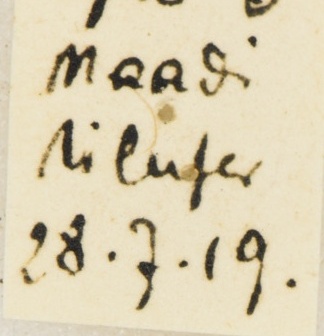 Maadi
Nilufer
28.7.19.